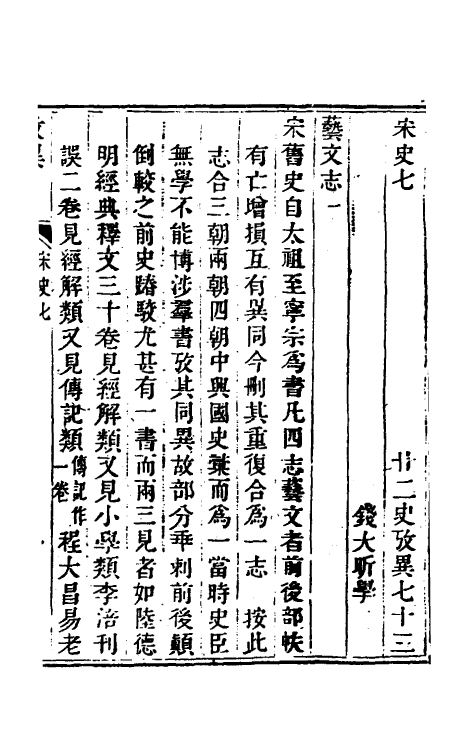 宋史七　廿二史攷異七十三
錢大昕學
藝文志一
宋舊史自太祖至寧宗爲書凡四志藝文者前後部帙
有亡增損互有異同今刪其重復合爲一志　按此
志合三朝兩朝四朝中興國史彙而爲一當時史臣
無學不能博涉羣書攷其同異故部分乖刺前後顛
倒較之前史踳駮尤甚有一書而兩三見者如陸德
明經典釋文三十卷見經解類又見小學類李涪刊
誤二卷見經解類又見傳記類傳記作一卷程大昌易老
宋史七